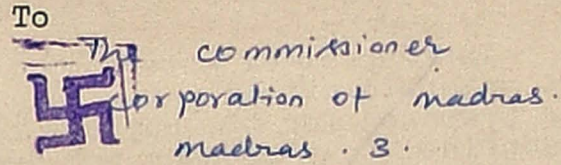 To
The commissioner
Corporation of madras.
madras . 3 .